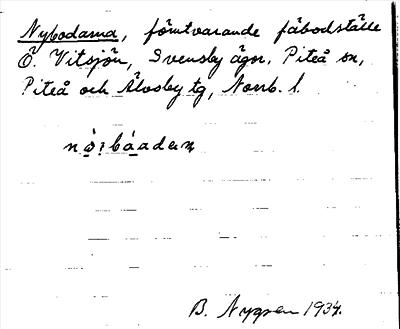 Nybodarna, förutvarande fäbodställe
Ö. Vitsjön, Svensby ägor, Piteå sn,
Piteå och Älvsby tg, Norrb. l.
B. Nygren 1934.